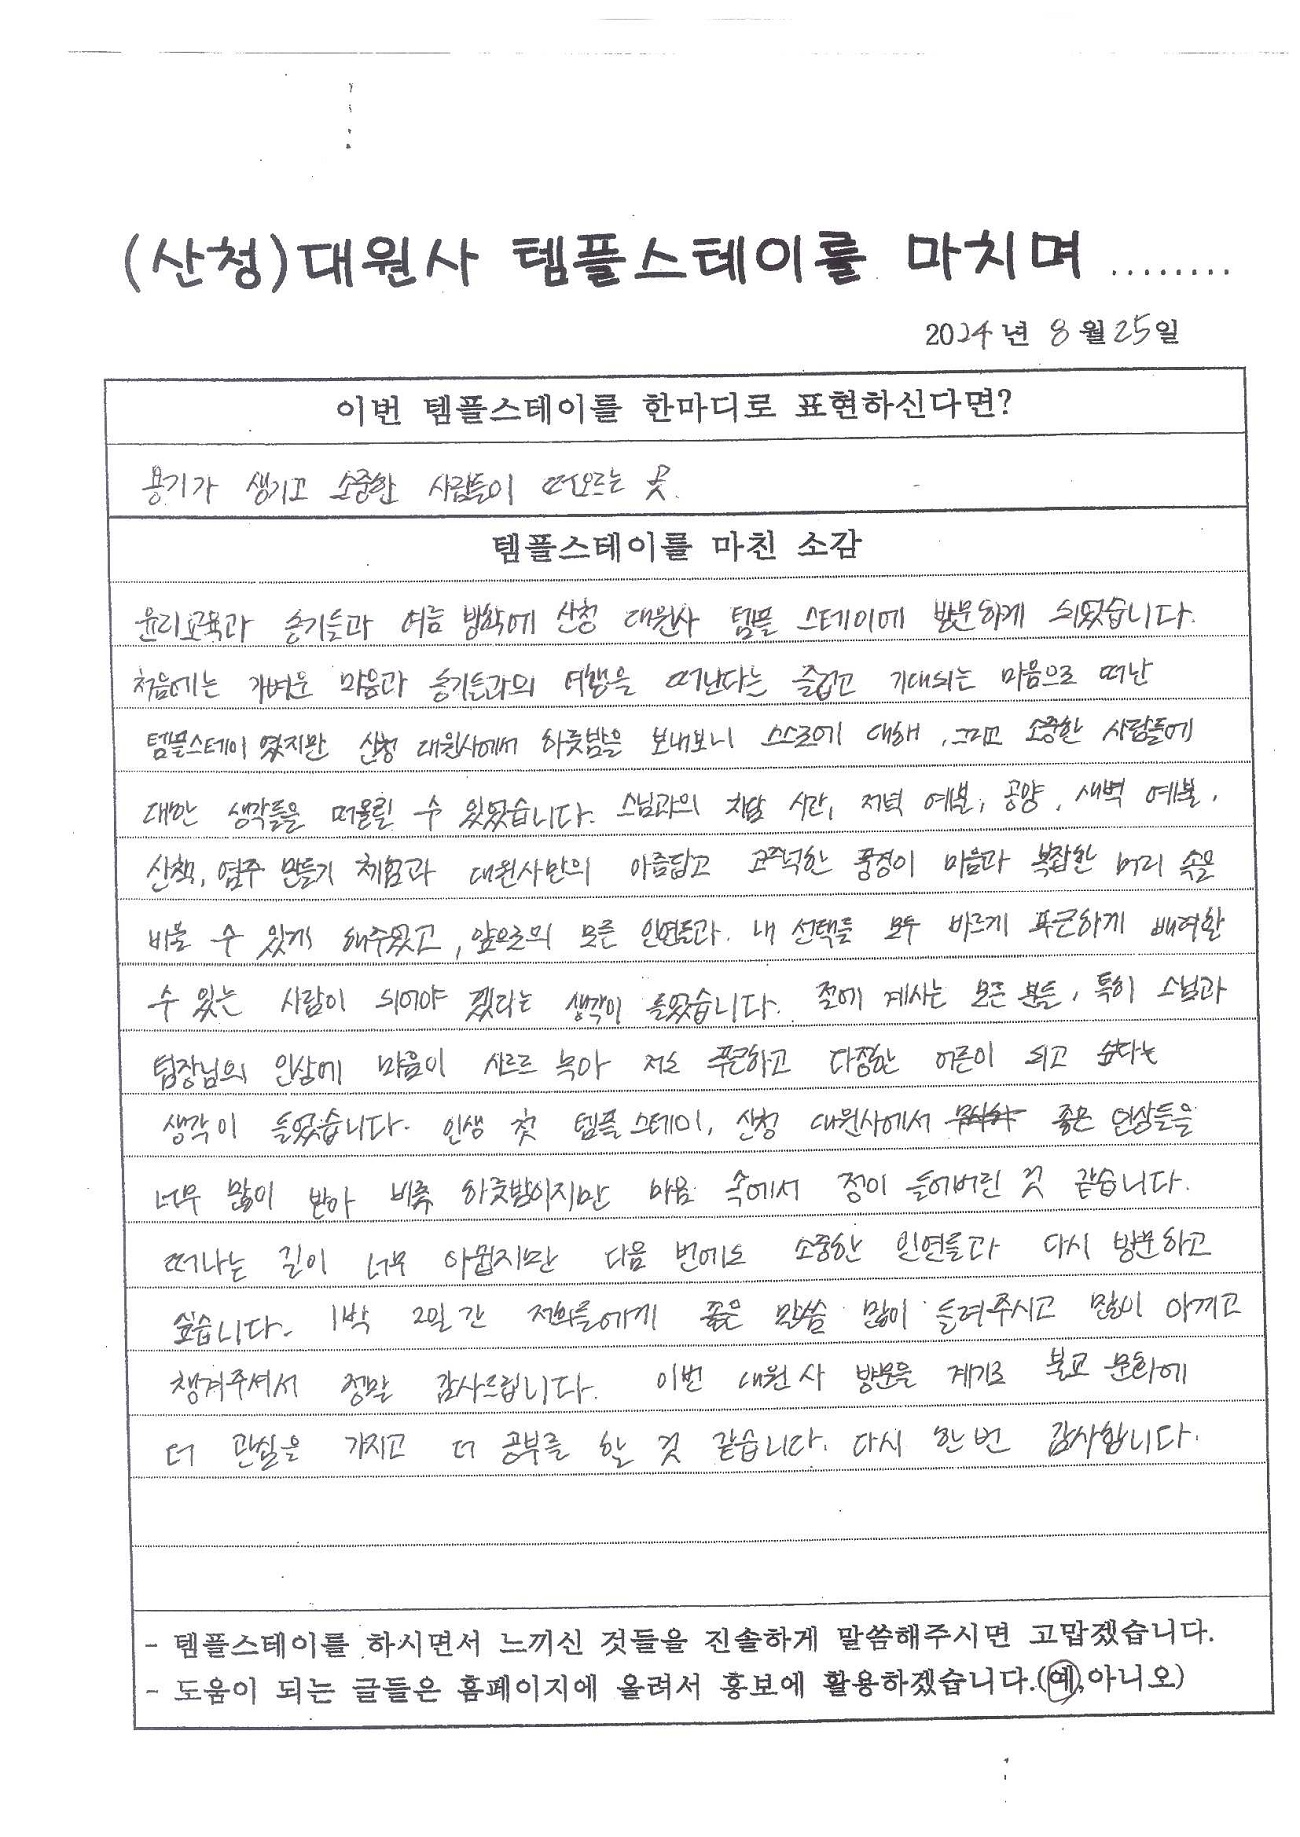 (산청)대원사 템플스테이를 마치며 ........
2024년 8월 25일
이번 템플스테이를 한마디로 표현하신다면?
용기가 생기고 소중한 사람들이 떠오르는 곳.
템플스테이를 마친 소감
윤리교육과 동기들과 여름 방학에 산청 대원사 템플 스테이에 방문하게 되었습니다.
처음에는 가벼운 마음과 동기들과의 여행을 떠난다는 즐겁고 기대되는 마음으로 떠난
템플스테이 였지만 산청 대원사에서 하룻밤을 보내보니 스스로에 대해, 그리고 소중한 사람들에
대한 생각들을 떠올릴 수 있었습니다. 스님과의 차담 시간, 저녁 예불, 공양, 새벽 예불,
산책, 염주 만들기 체험과 대원사만의 아름답고 고즈넉한 풍경이 마음과 복잡한 머리 속을
비울 수 있게 해주었고, 앞으로의 모든 인연들과 내 선택을 모두 바르게 푸근하게 배려할
수 있는 사람이 되어야 겠다는 생각이 들었습니다. 절에 계시는 모든 분들, 특히 스님과
팀장님의 인상에 마음이 사르르 녹아 저도 푸근하고 다정한 어른이 되고 싶다는
생각이 들었습니다. 인생 첫 템플 스테이, 산청 대원사에서 좋은 인상들을
너무 많이 받아 비록 하룻밤이지만 마음 속에서 정이 들어버린 것 같습니다.
떠나는 길이 너무 아쉽지만 다음 번에도 소중한 인연들과 다시 방문하고
싶습니다. 1박 2일간 저희들에게 좋은 말씀 많이 들려주시고 많이 아끼고
챙겨주셔서 정말 감사드립니다. 이번 대원사 방문을 계기로 불교 문화에
더 관심을 가지고 더 공부를 할 것 같습니다. 다시 한번 감사합니다.
- 템플스테이를 하시면서 느끼신 것들을 진솔하게 말씀해주시면 고맙겠습니다.
- 도움이 되는 글들은 홈페이지에 올려서 홍보에 활용하겠습니다.(예,아니오)